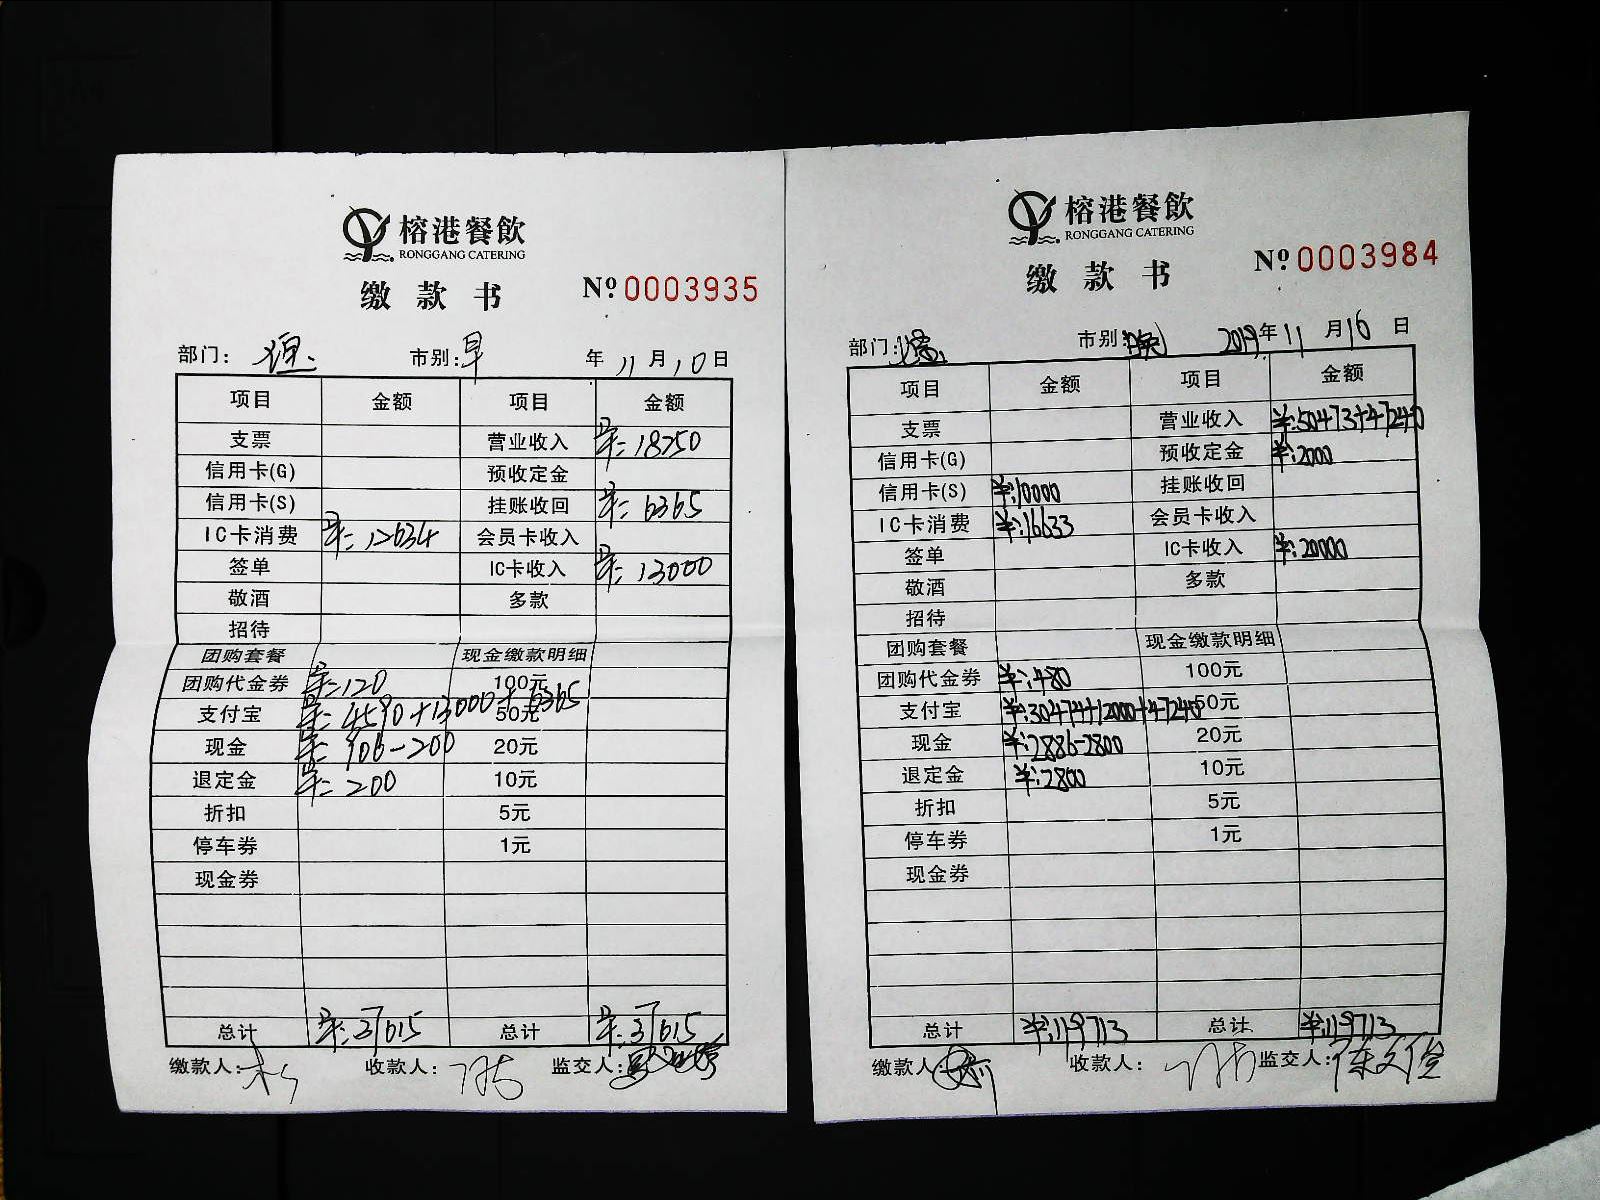 榕港餐飲
RONGGANG CATERING
缴款书
№ 0003935
部门： 市别：早 年 11月10日
项目 金额 项目 金额
支票 营业收入 ¥：18250
信用卡(G) 预收定金
信用卡(S) 挂账收回 ¥：6365
IC卡消费 ¥：12634 会员卡收入
签单 IC卡收入 ¥：13000
敬酒 多款
招待
团购套餐 现金缴款明细
团购代金券 ¥：120 100元
支付宝 ¥：4590+13000+6365 50元
现金 ¥：906-200 20元
退定金 ¥：200 10元
折扣 5元
停车券 1元
现金券
总计 ¥：37615 总计 ¥：37615
缴款人： 收款人： 监交人：
榕港餐飲
RONGGANG CATERING
缴款书
№ 0003984
部门： 市别：晚 2019年11月16日
项目 金额 项目 金额
支票 营业收入 ¥：50473+47240
信用卡(G) 预收定金 ¥：2000
信用卡(S) ¥：10000 挂账收回
IC卡消费 ¥：16633 会员卡收入
签单 IC卡收入 ¥：20000
敬酒 多款
招待
团购套餐 现金缴款明细
团购代金券 ¥：480 100元
支付宝 ¥：30474+12000+47240 50元
现金 ¥：2886-2800 20元
退定金 ¥：2800 10元
折扣 5元
停车券 1元
现金券
总计 ¥：119713 总计 ¥：119713
缴款人： 收款人： 监交人：